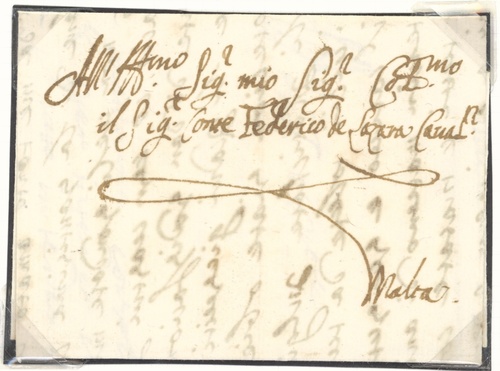 All' Ill.mo Sig.r mio Sig.r Col.mo
il Sig.r Conte Federico de Lazara Caval.r
Malta.